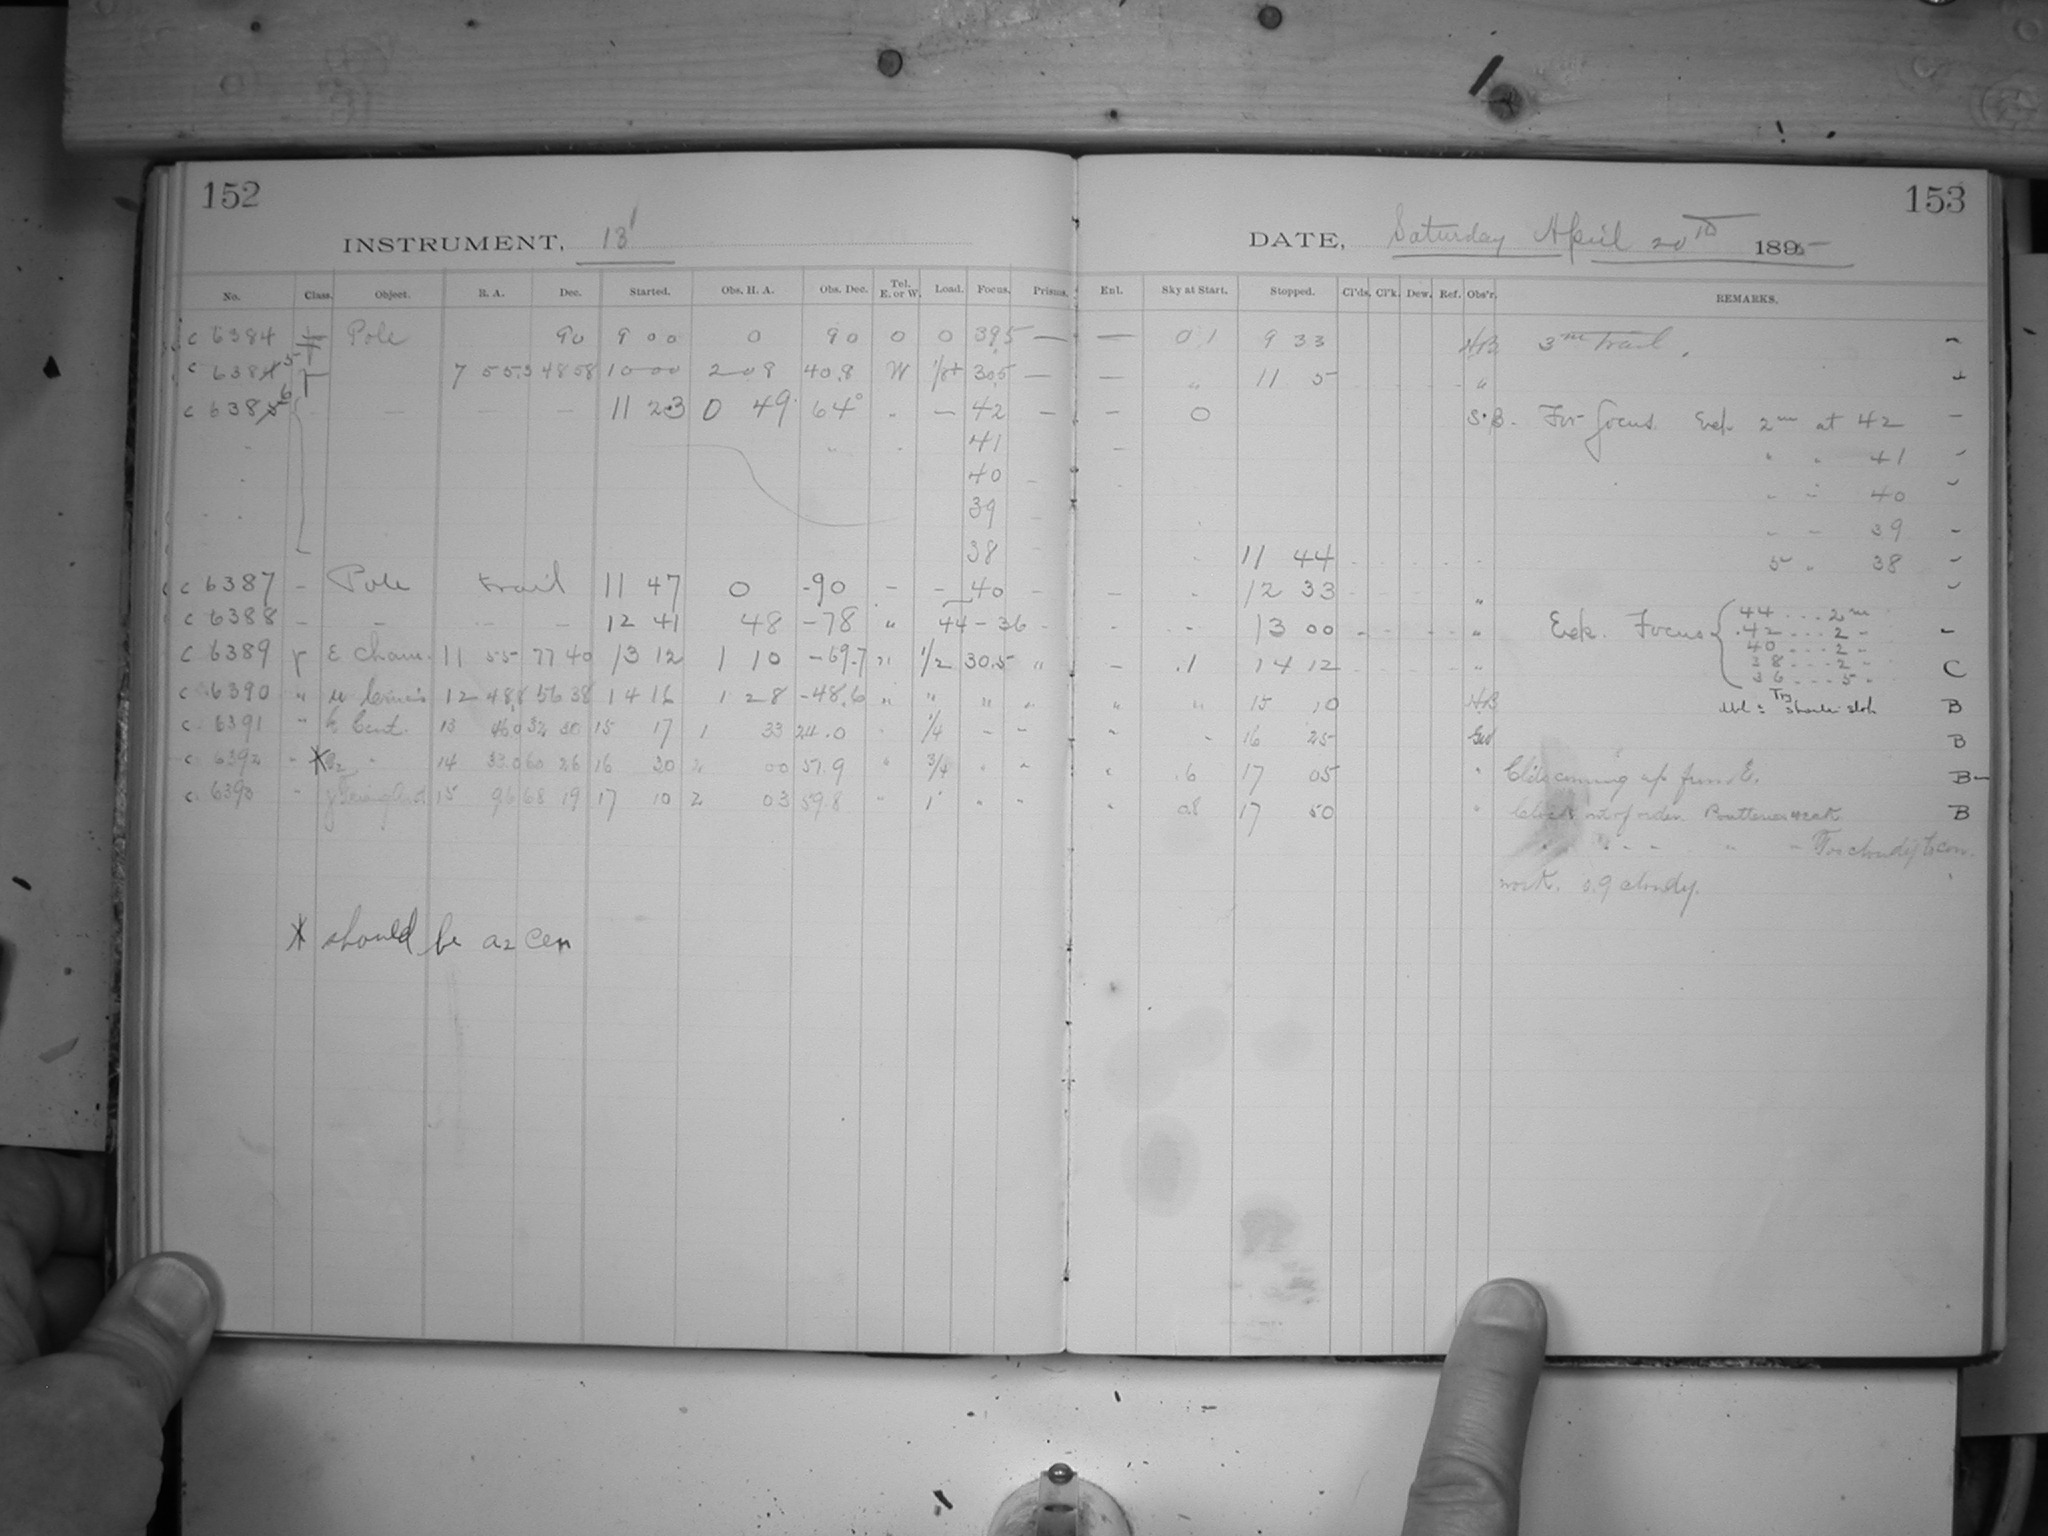 152
INSTRUMENT, 13'
No. Class. Object. R. A. Dec. Started. Obs. H. A. Obs. Dec. Tel. E. or W. Load. Focus. Prisms.
c 6384 Pole 90 9 00 0 90 0 0 39.5 —
c 6385 7 55.3 48 58 10 00 2 09 40.8 W 30.5 —
c 6386 — — — 11 23 0 49 64° " — 42 —
41
40
39
38
c 6387 – Pole trail 11 47 0 -90 – – 40 –
c 6388 – – – – 12 41 48 -78 " 44 – 36 –
c 6389 r E Cham. 11 55 77 40 13 12 1 10 -69.7 " 1/2 30.5 "
c 6390 " u Crucis 12 48.8 56 38 14 16 1 28 -48.6 " " " "
c 6391 " k Cent. 13 46.0 32 30 15 17 1 33 24.0 " 1/4 – –
c 6392 " * " 14 33.0 60 26 16 20 2 00 57.9 " 3/4 " "
c 6393 " 15 9.6 68 19 17 10 2 03 59.8 " 1 " "
* should be a2 Cen
153
DATE, Saturday April 20th 1895
Enl. Sky at Start. Stopped. Cl'ds, Cl'k. Dew. Ref. Obs'r. REMARKS.
— 0.1 9 33 3m trail. –
— " 11 5 "
— 0 S.B. For focus. Exp. 2m at 42 –
" " 41
" " 40
" " 39
11 44 5 " 38
– – 12 33 "
– – 13 00 " Exp. Focus { 44 ... 2m
42 ... 2 "
40 ... 2 "
38 ... 2 "
36 ... 5 "
– .1 14 12 " C
" " 15 10 B
" " 16 25 B
" .6 17 05 " Clds coming up from E. B–
" 08 17 50 " Clock out of order B
" " " Too cloudy to con.
work. 0.9 cloudy.